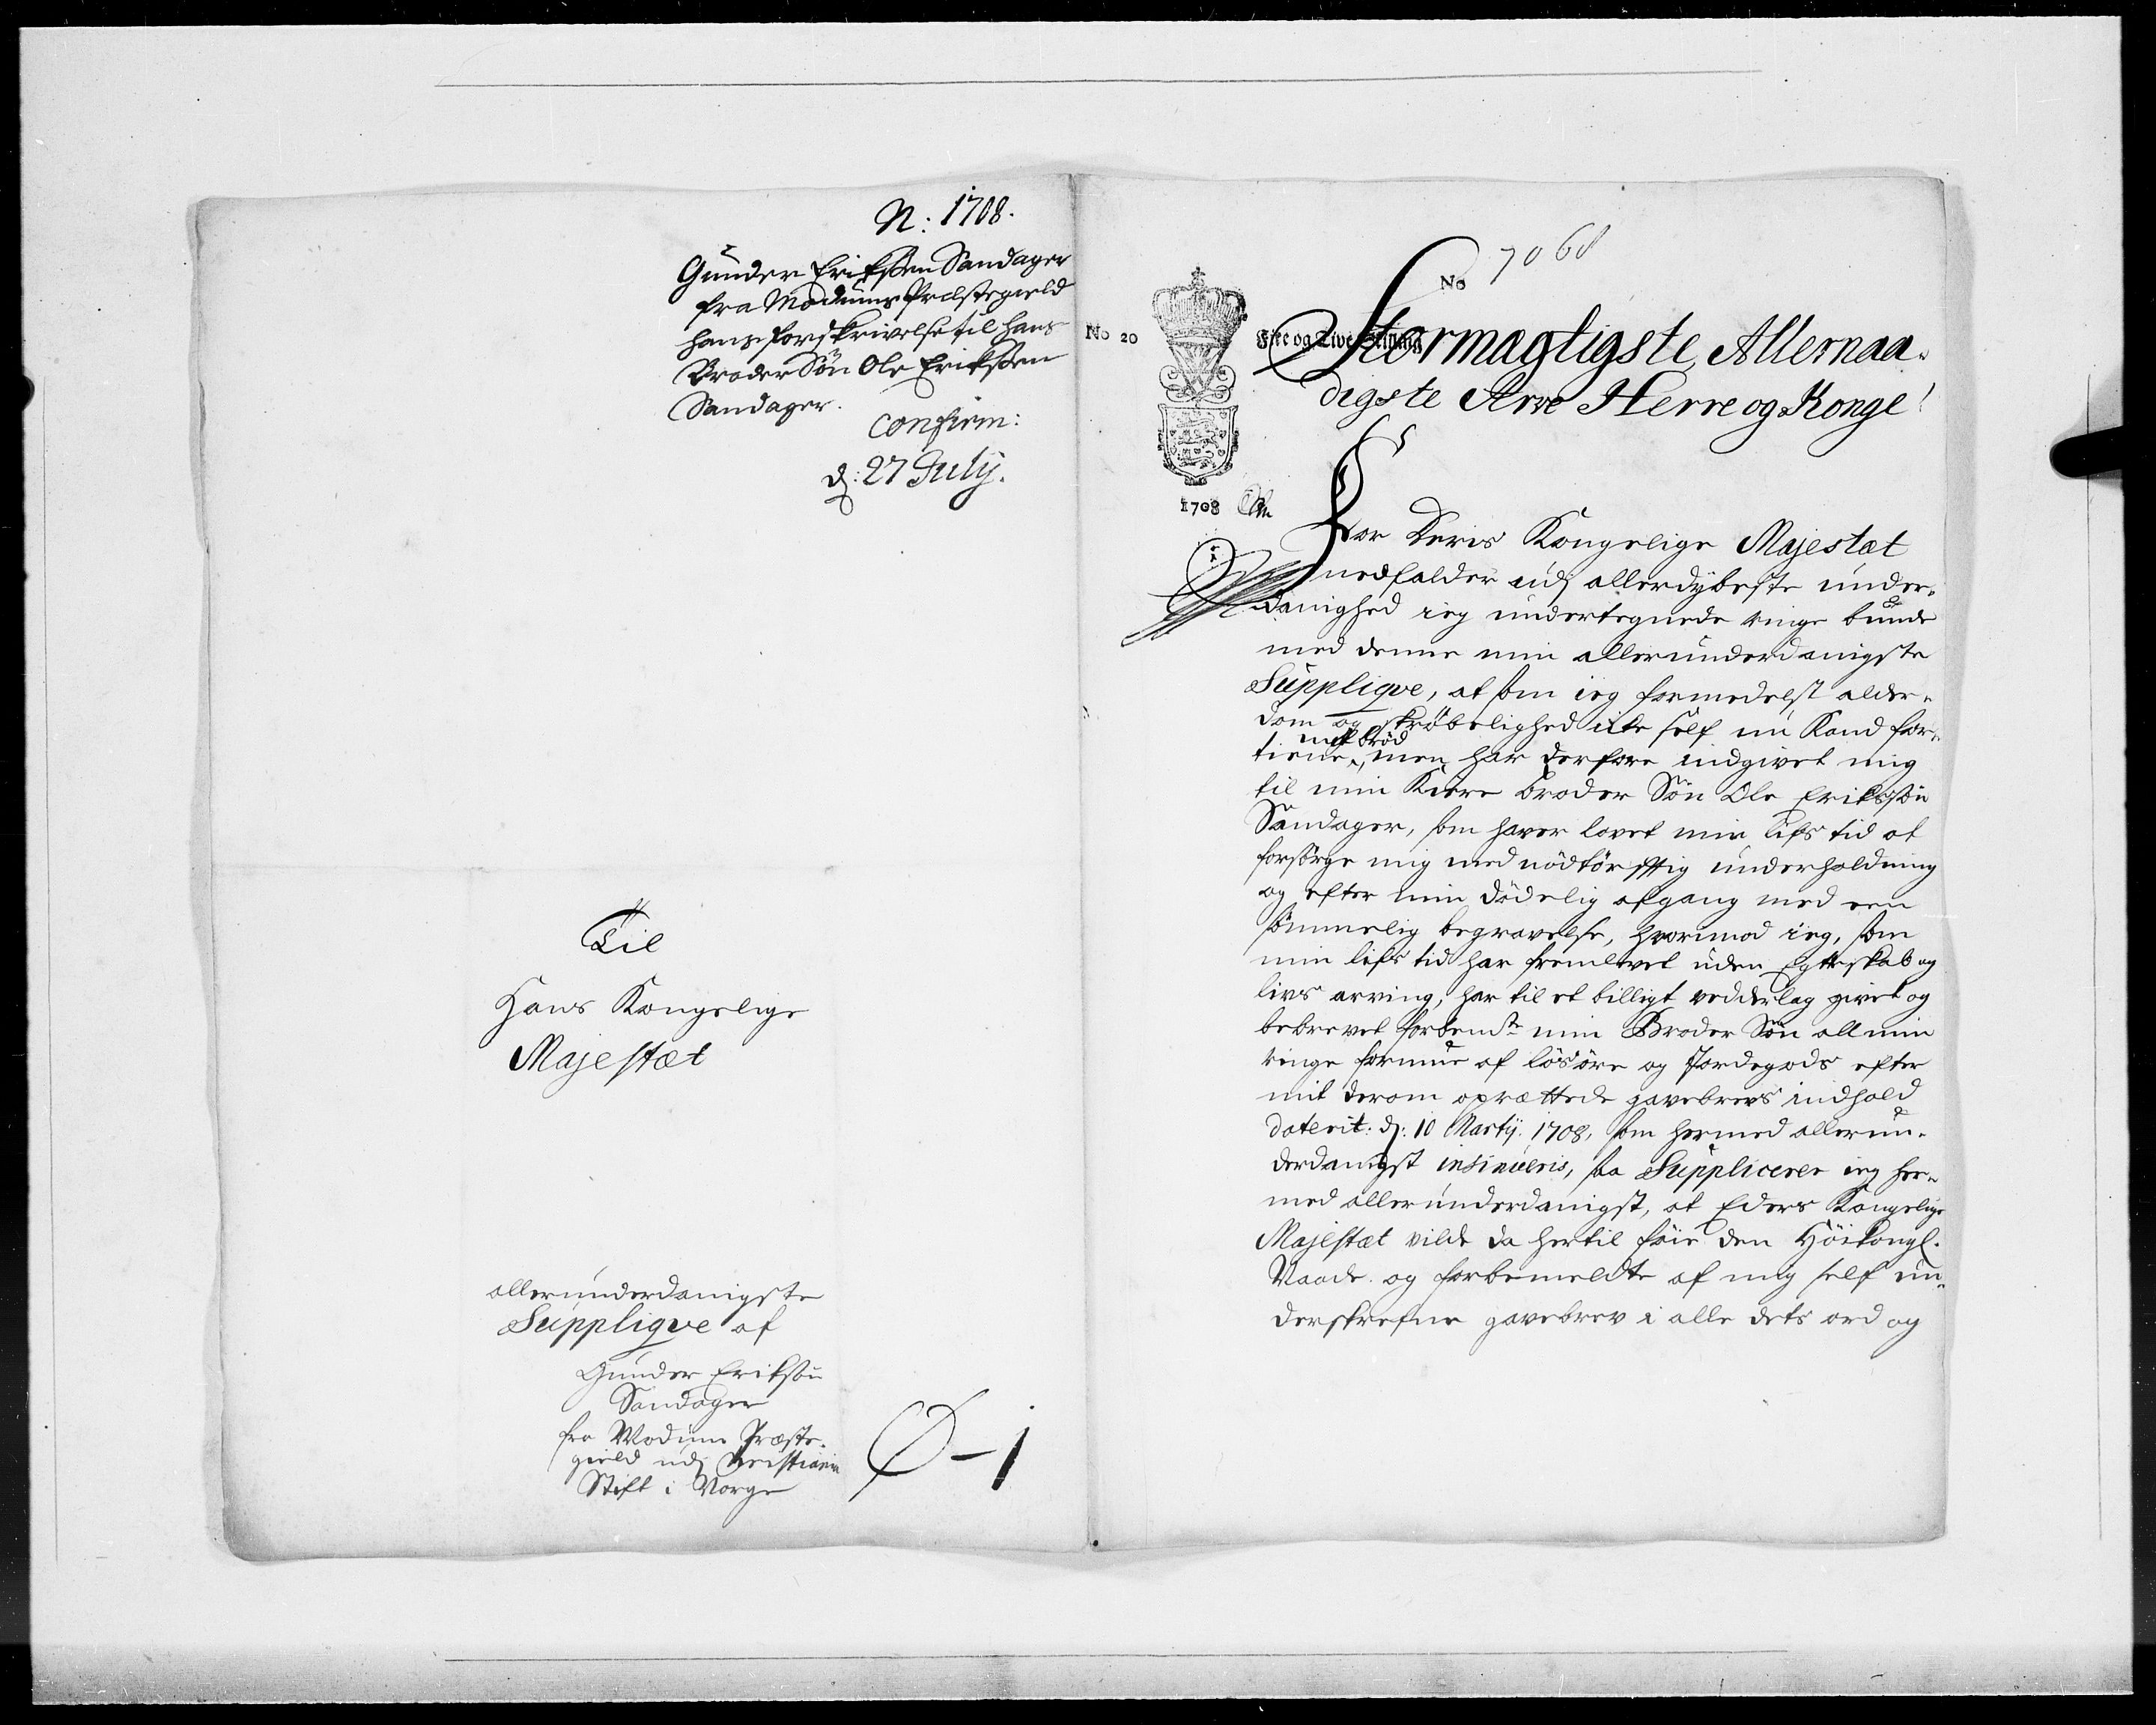 N: 1708.
Gunder Erikssen Sandager
fra Modums Præstegield
hans forskrivelse til hans
Broder Søn Ole Erikssen
Sandager.
Confirm:
d: 27 July.
Til
Hans Kongelige
Majestæt
allerunderdanigste
Suppliqve af
Gunder Eriksøn
Sandager
fra Modum Præste-
gield udj Christiania
Stift i Norge
No 7068
No 20
Stormægtigste, Allernaa-
digste Arve Herre og Konge!
1708
For Deris Kongelige Majestæt
nedfalder udj allerdybeste under-
danighed ieg undertegnede ringe bunde
med denne min allerunderdanigste
Suppliqve, at som ieg formedelst alder-
dom og skrøbelighed icke self nu kand for-
mit brød
tiene, men har derfore indgivet mig
til min kiere broder Søn Ole Eriksøn
Sandager, som haver lovet min lifs tid at
forsørge mig med nødtørfftig underholdning
og efter min dødelig afgang med een
sømmelig begravelse, hvorimod ieg, som
min lifs tid har fremlevet uden Egteskab og
livs arving, har til et billigt vedderlag givet og
bebrevet forbemte min Broder Søn all min
ringe formue af løsøre og Jordegods efter
mit derom oprættede gavebrevs indhold
daterit: d: 10 Martij. 1708, som hermed allerun-
derdanigst insinueris, saa Supplicerer ieg her-
med allerunderdanigst, at Eders Kongelige
Majestæt vilde da hertil føie den Høikongl.
Naade og forbemeldte af mig self un-
derskrefne gavebrev i alle dets ord og